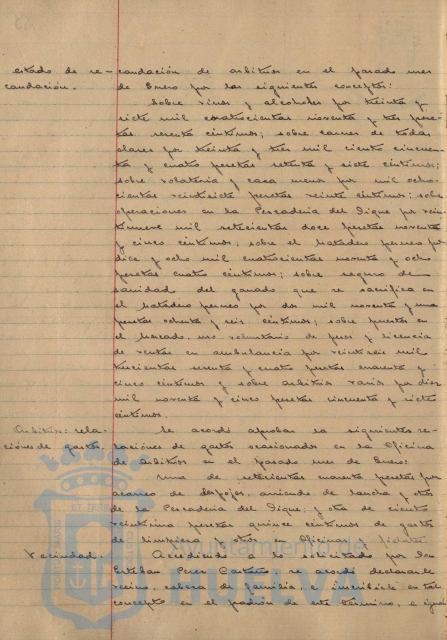 estado de re- caudación de arbitrios en el pasado mes
caudación. de Enero por los siguientes conceptos:
Sobre vinos y alcoholes por treinta y
siete mil cuatrocientas noventa y tres pese-
tas setenta céntimos; sobre carnes de todas
clases por treinta y tres mil ciento cincuen-
ta y cuatro pesetas setenta y siete céntimos;
sobre volatería y caza menor por mil ocho-
cientas veintisiete pesetas veinte céntimos; sobre
operaciones en la Pescadería del Dique por vein-
tinueve mil setecientas doce pesetas noventa
y cinco céntimos; sobre el matadero perneo por
diez y ocho mil cuatrocientas noventa y ocho
pesetas cuatro céntimos; sobre seguro de
sanidad del ganado que se sacrifica en
el matadero perneo por dos mil noventa y una
pesetas ochenta y seis céntimos; sobre puestos en
el mercado, uso voluntario de pesas y licencia
de ventas en ambulancia por veintiseis mil
trescientas y cuatro pesetas
cinco céntimos y sobre arbitrios varios por diez
mil noventa y cinco pesetas cincuenta y siete
céntimos.
Arbitrios: rela- Se acordó aprobar las siguientes re-
ciones de gastos. laciones de gastos ocasionados en la Oficina
de Arbitrios en el pasado mes de Enero:
Una de setecientas cuarenta pesetas por
acarreo de despojos, arriendo de lancha y otros
de la Pescadería del Dique; y otra de ciento
veintiuna pesetas quince céntimos de gastos
de limpieza y otros en Oficinas y fielatos.
Vecindad. Accediendo a lo solicitado por Don
Esteban Perez Castaño, se acordó declararle
vecino, cabeza de familia, e inscribirle en tal
concepto en el padrón de este término, e igual
Ayuntamiento de
HUELVA